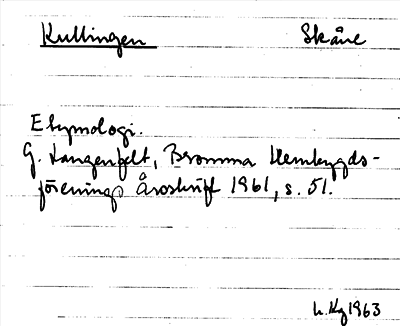 Kullingen Skåne
Etymologi.
G. Langenfelt, Bromma Hembygds-
förenings Årsskrift 1961, s. 51.
1963